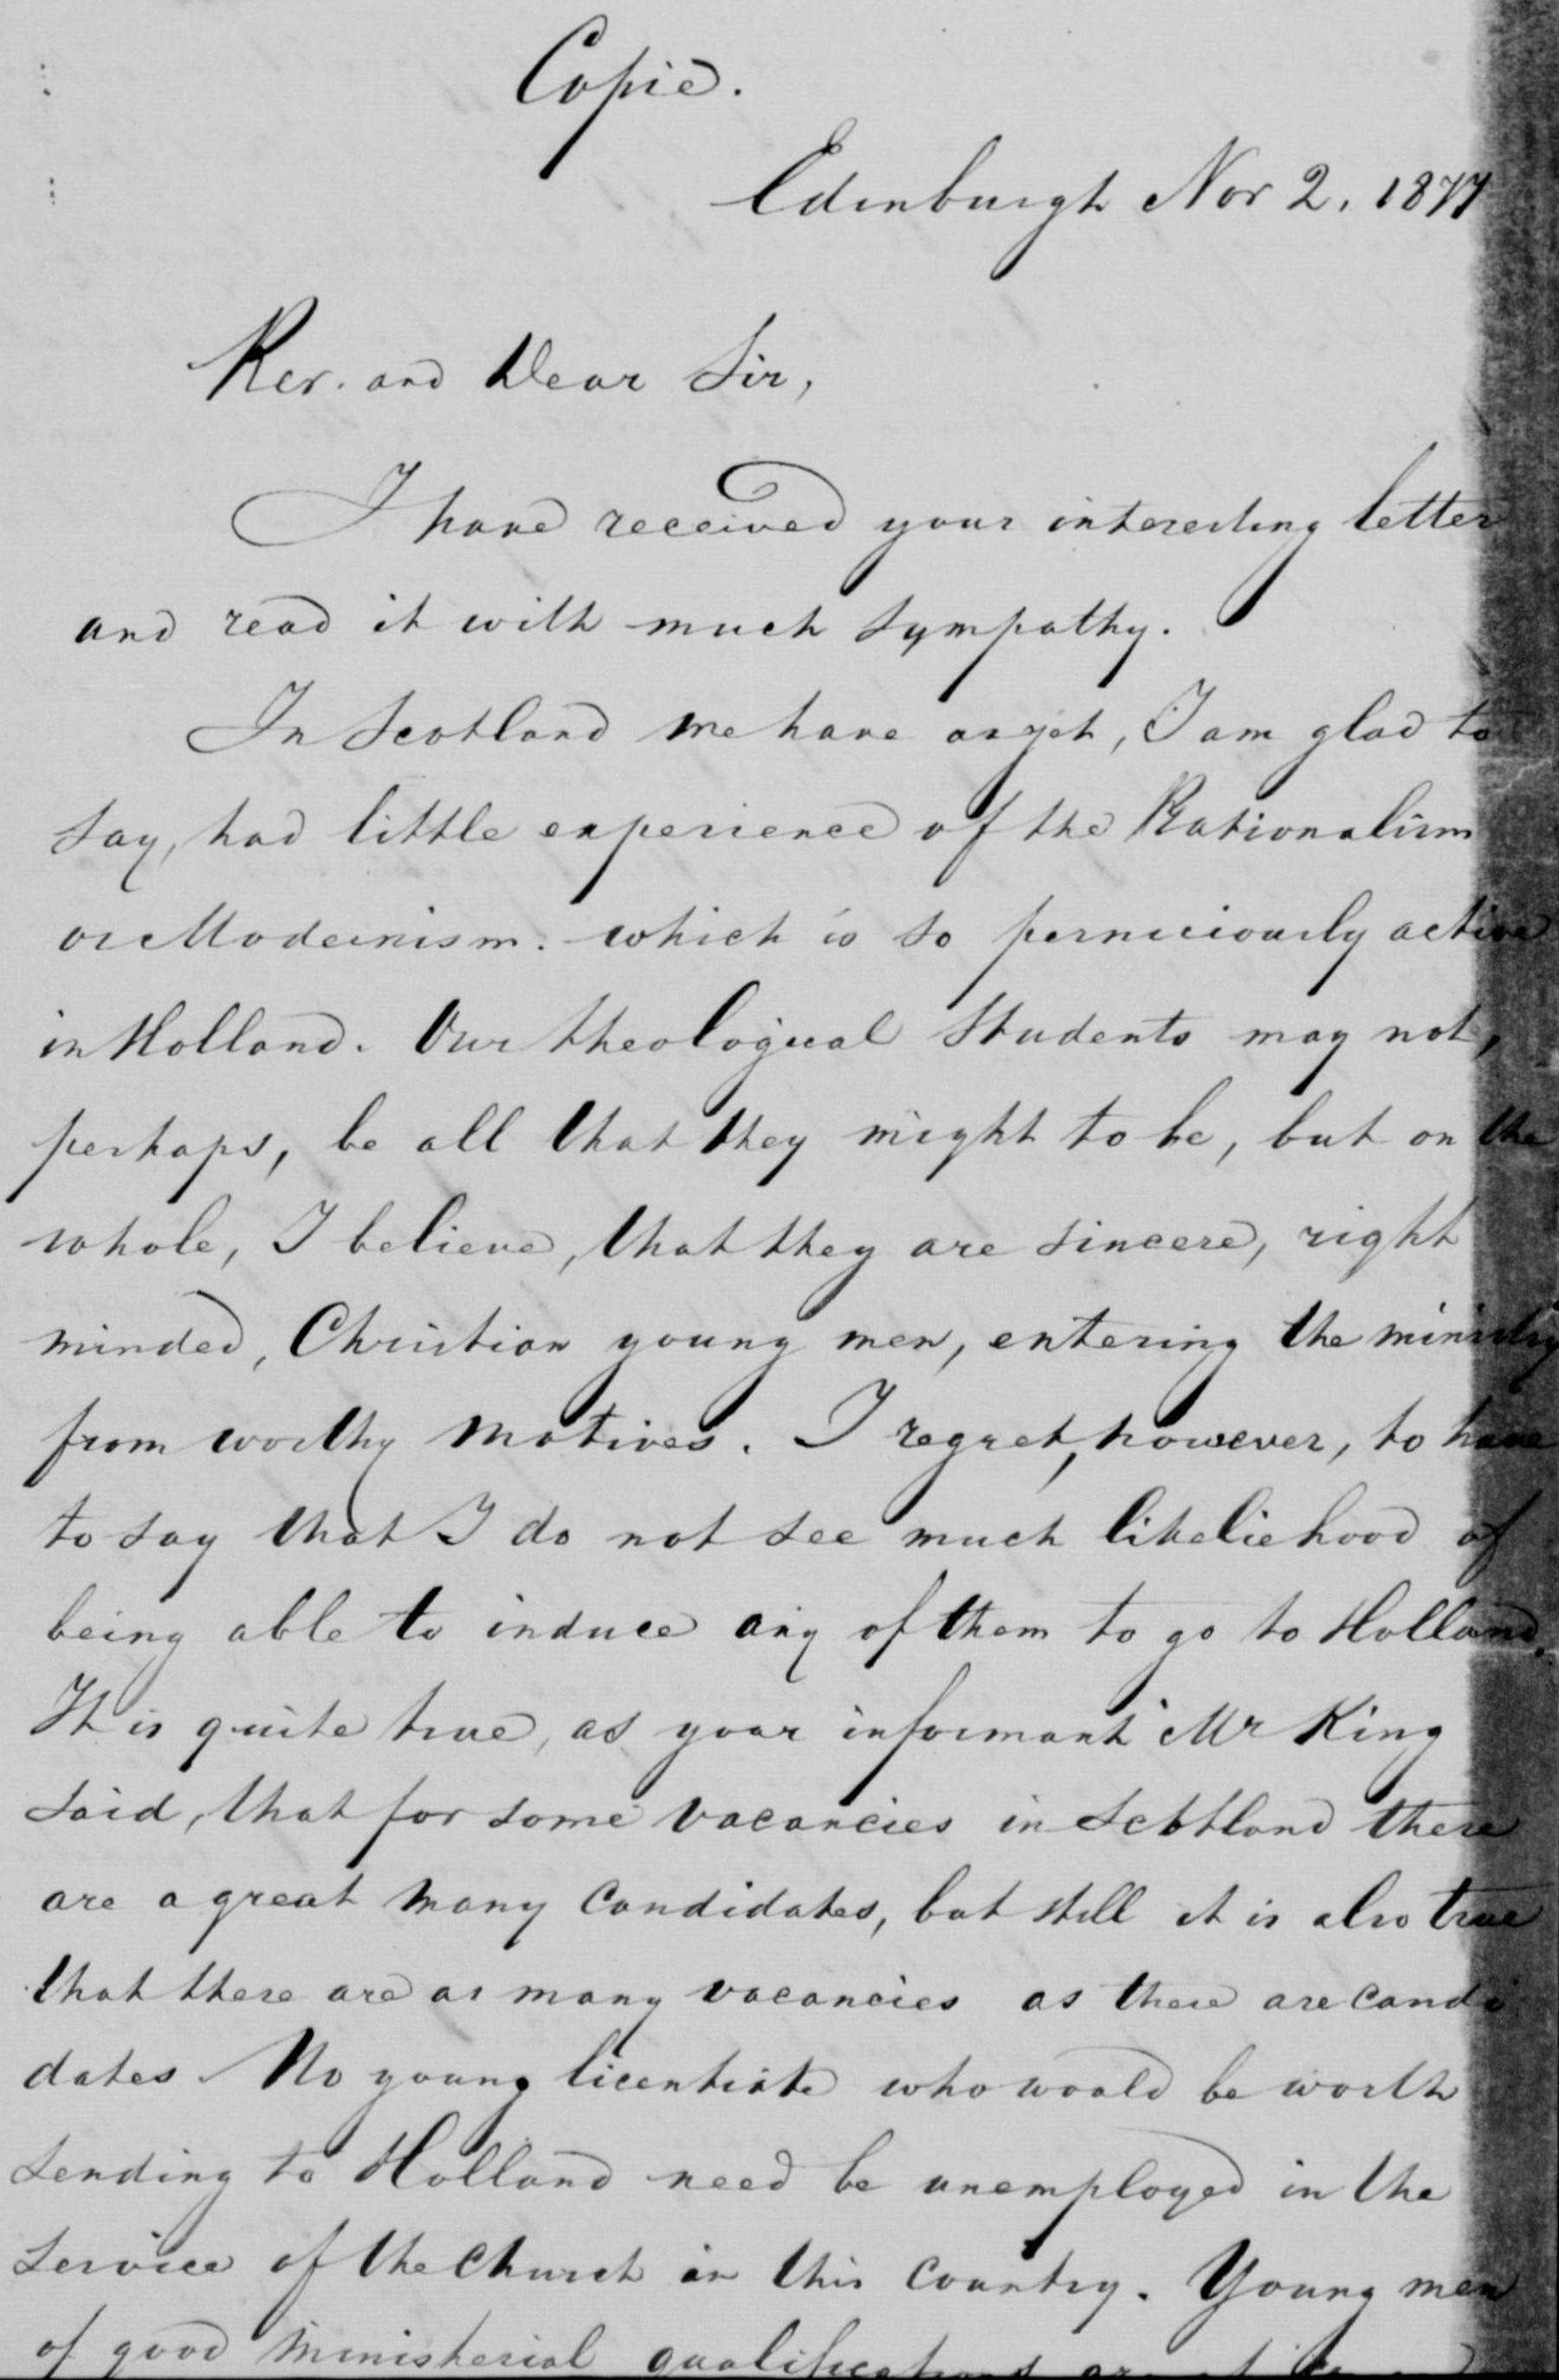 Copie.
Edinburgh Nov 2. 1877
Rev. and Dear Sir,
I have received your interesting letter
and read it with much sympathy.
In Scotland we have as yet, I am glad to
say, had little experience of the Rationalism
or Modernism. which is so perniciously active
in Holland. Our theological Students may not,
perhaps, be all that they might to be, but on the
whole, I believe, that they are sincere, right
minded, Christian young men, entering the ministry
from worthy motives. I regret, however, to have
to say that I do not see much likeliehood of
being able to induce any of them to go to Holland.
It is quite true, as your informant Mr King
said, that for some vacancies in Scotland there
are a great many candidates, but still it is also true
that there are as many vacancies as there are candi
dates. No young licentiate who would be worth
sending to Holland need be unemployed in the
service of the Church in this country. Young men
of good ministerial qualifications